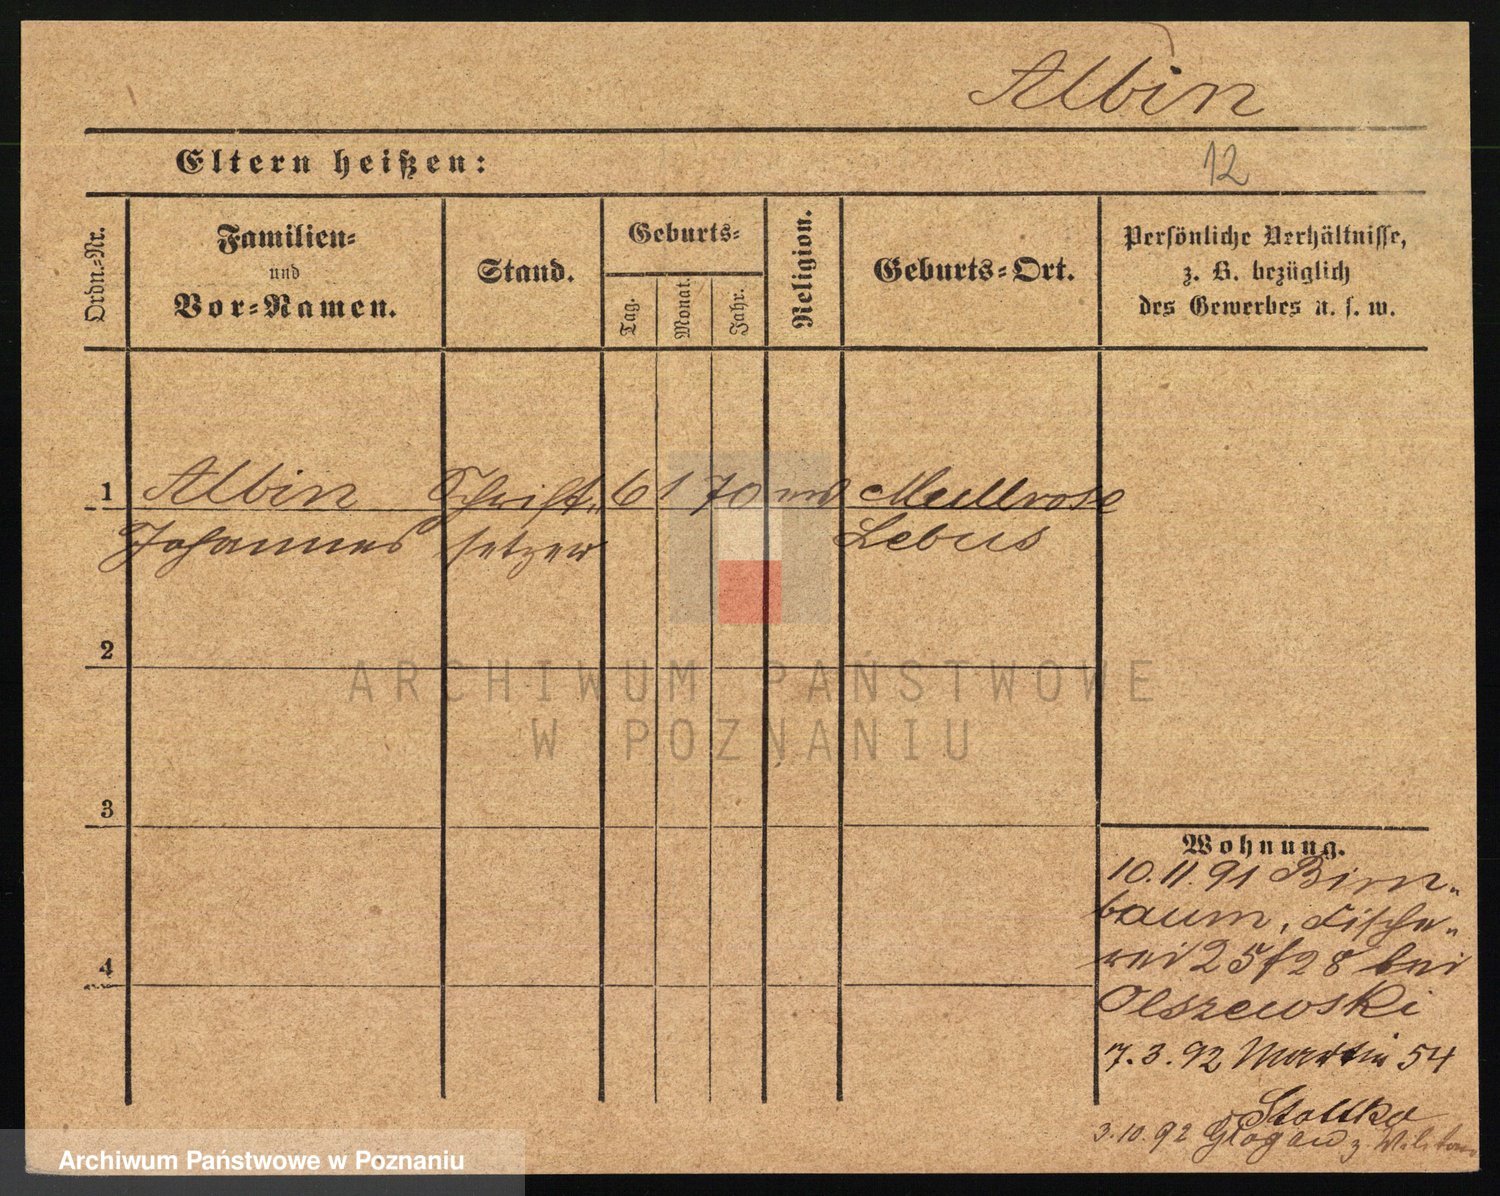 Albin
Eltern heißen:
12
Ordn.-Nr.
Familien-
und
Vor-Namen.
Stand.
Geburts-
Tag.
Monat.
Jahr.
Religion.
Geburts-Ort.
Persönliche Verhältnisse,
z. B. bezüglich
des Gewerbes u. s. w.
1 Albin Schrift- 6 1 70 Mullrose
Johannes setzer Lebus
2
3
4
Wohnung.
10.11.91 Birn-
baum, Fische-
rei 25/28 bei
Olszewski
7.3.92 Martin 54
3.10.92 Glogau z. Militär
ARCHIWUM PAŃSTWOWE
W POZNANIU
Archiwum Państwowe w Poznaniu